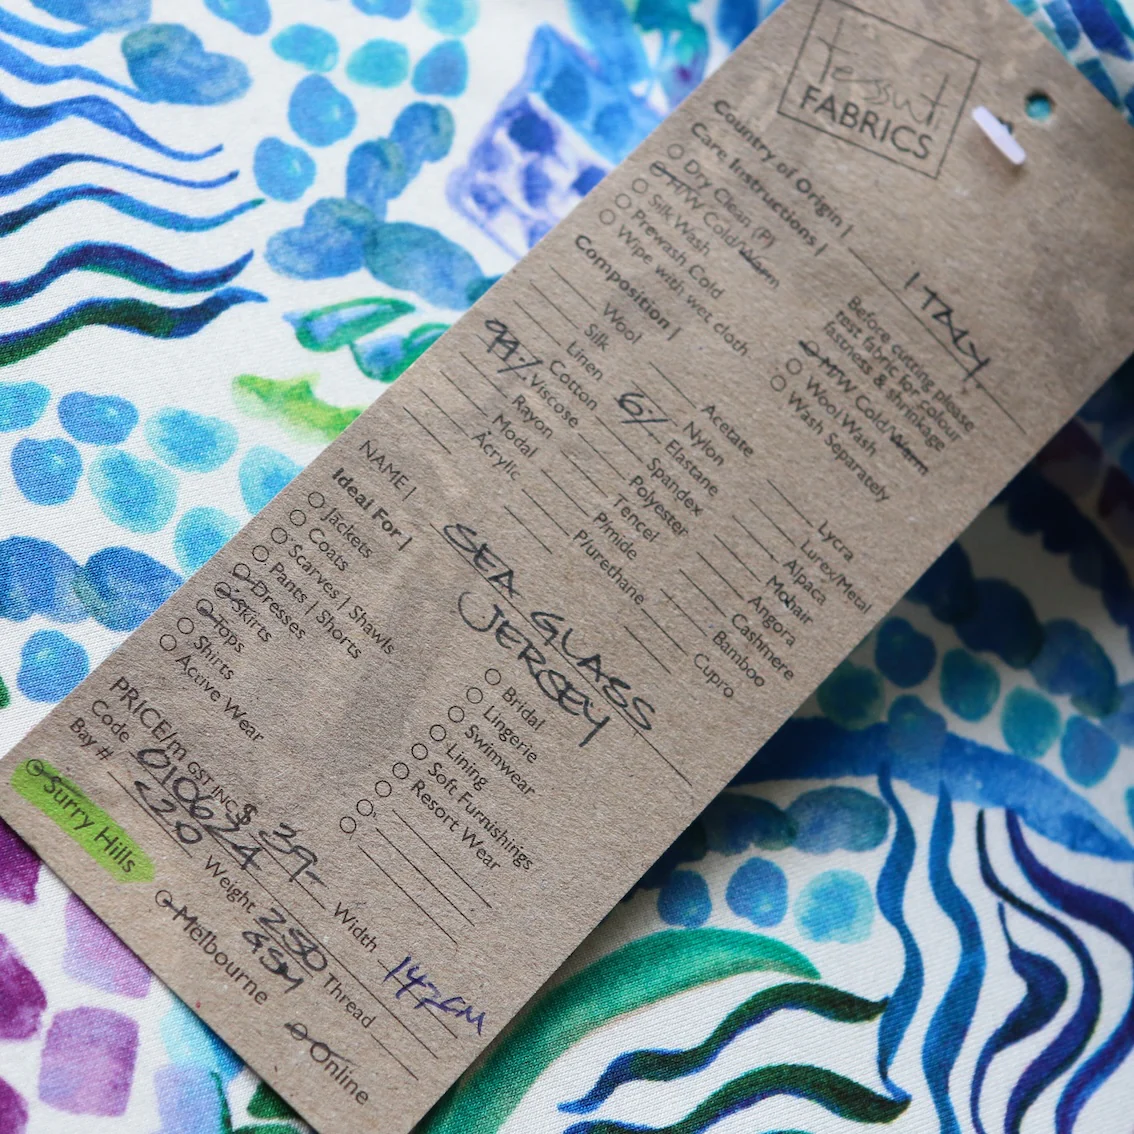 tessuti
FABRICS
Country of Origin | ITALY
Care Instructions |
Dry Clean (P)
H/W Cold/Warm
Silk Wash
Prewash Cold
Wipe with wet cloth
Before cutting please
test fabric for colour
fastness & shrinkage
M/W Cold/Warm
Wool Wash
Wash Separately
Composition |
Wool
Silk
Linen
Cotton
Viscose
Rayon
Modal
Acrylic
Acetate
Nylon
6% Elastane
Spandex
Polyester
Tencel
P/mide
P/urethane
Lycra
Lurex/Metal
Alpaca
Mohair
Angora
Cashmere
Bamboo
Cupro
NAME | SEA GLASS
JERSEY
Ideal For |
Jackets
Coats
Scarves | Shawls
Pants | Shorts
Dresses
Skirts
Tops
Shirts
Active Wear
Bridal
Lingerie
Swimwear
Lining
Soft Furnishings
Resort Wear
PRICE/m GST INC $39-
Code 010624 Width 147cm
Bay # <20 Weight 250 GSM Thread
Surry Hills Melbourne Online